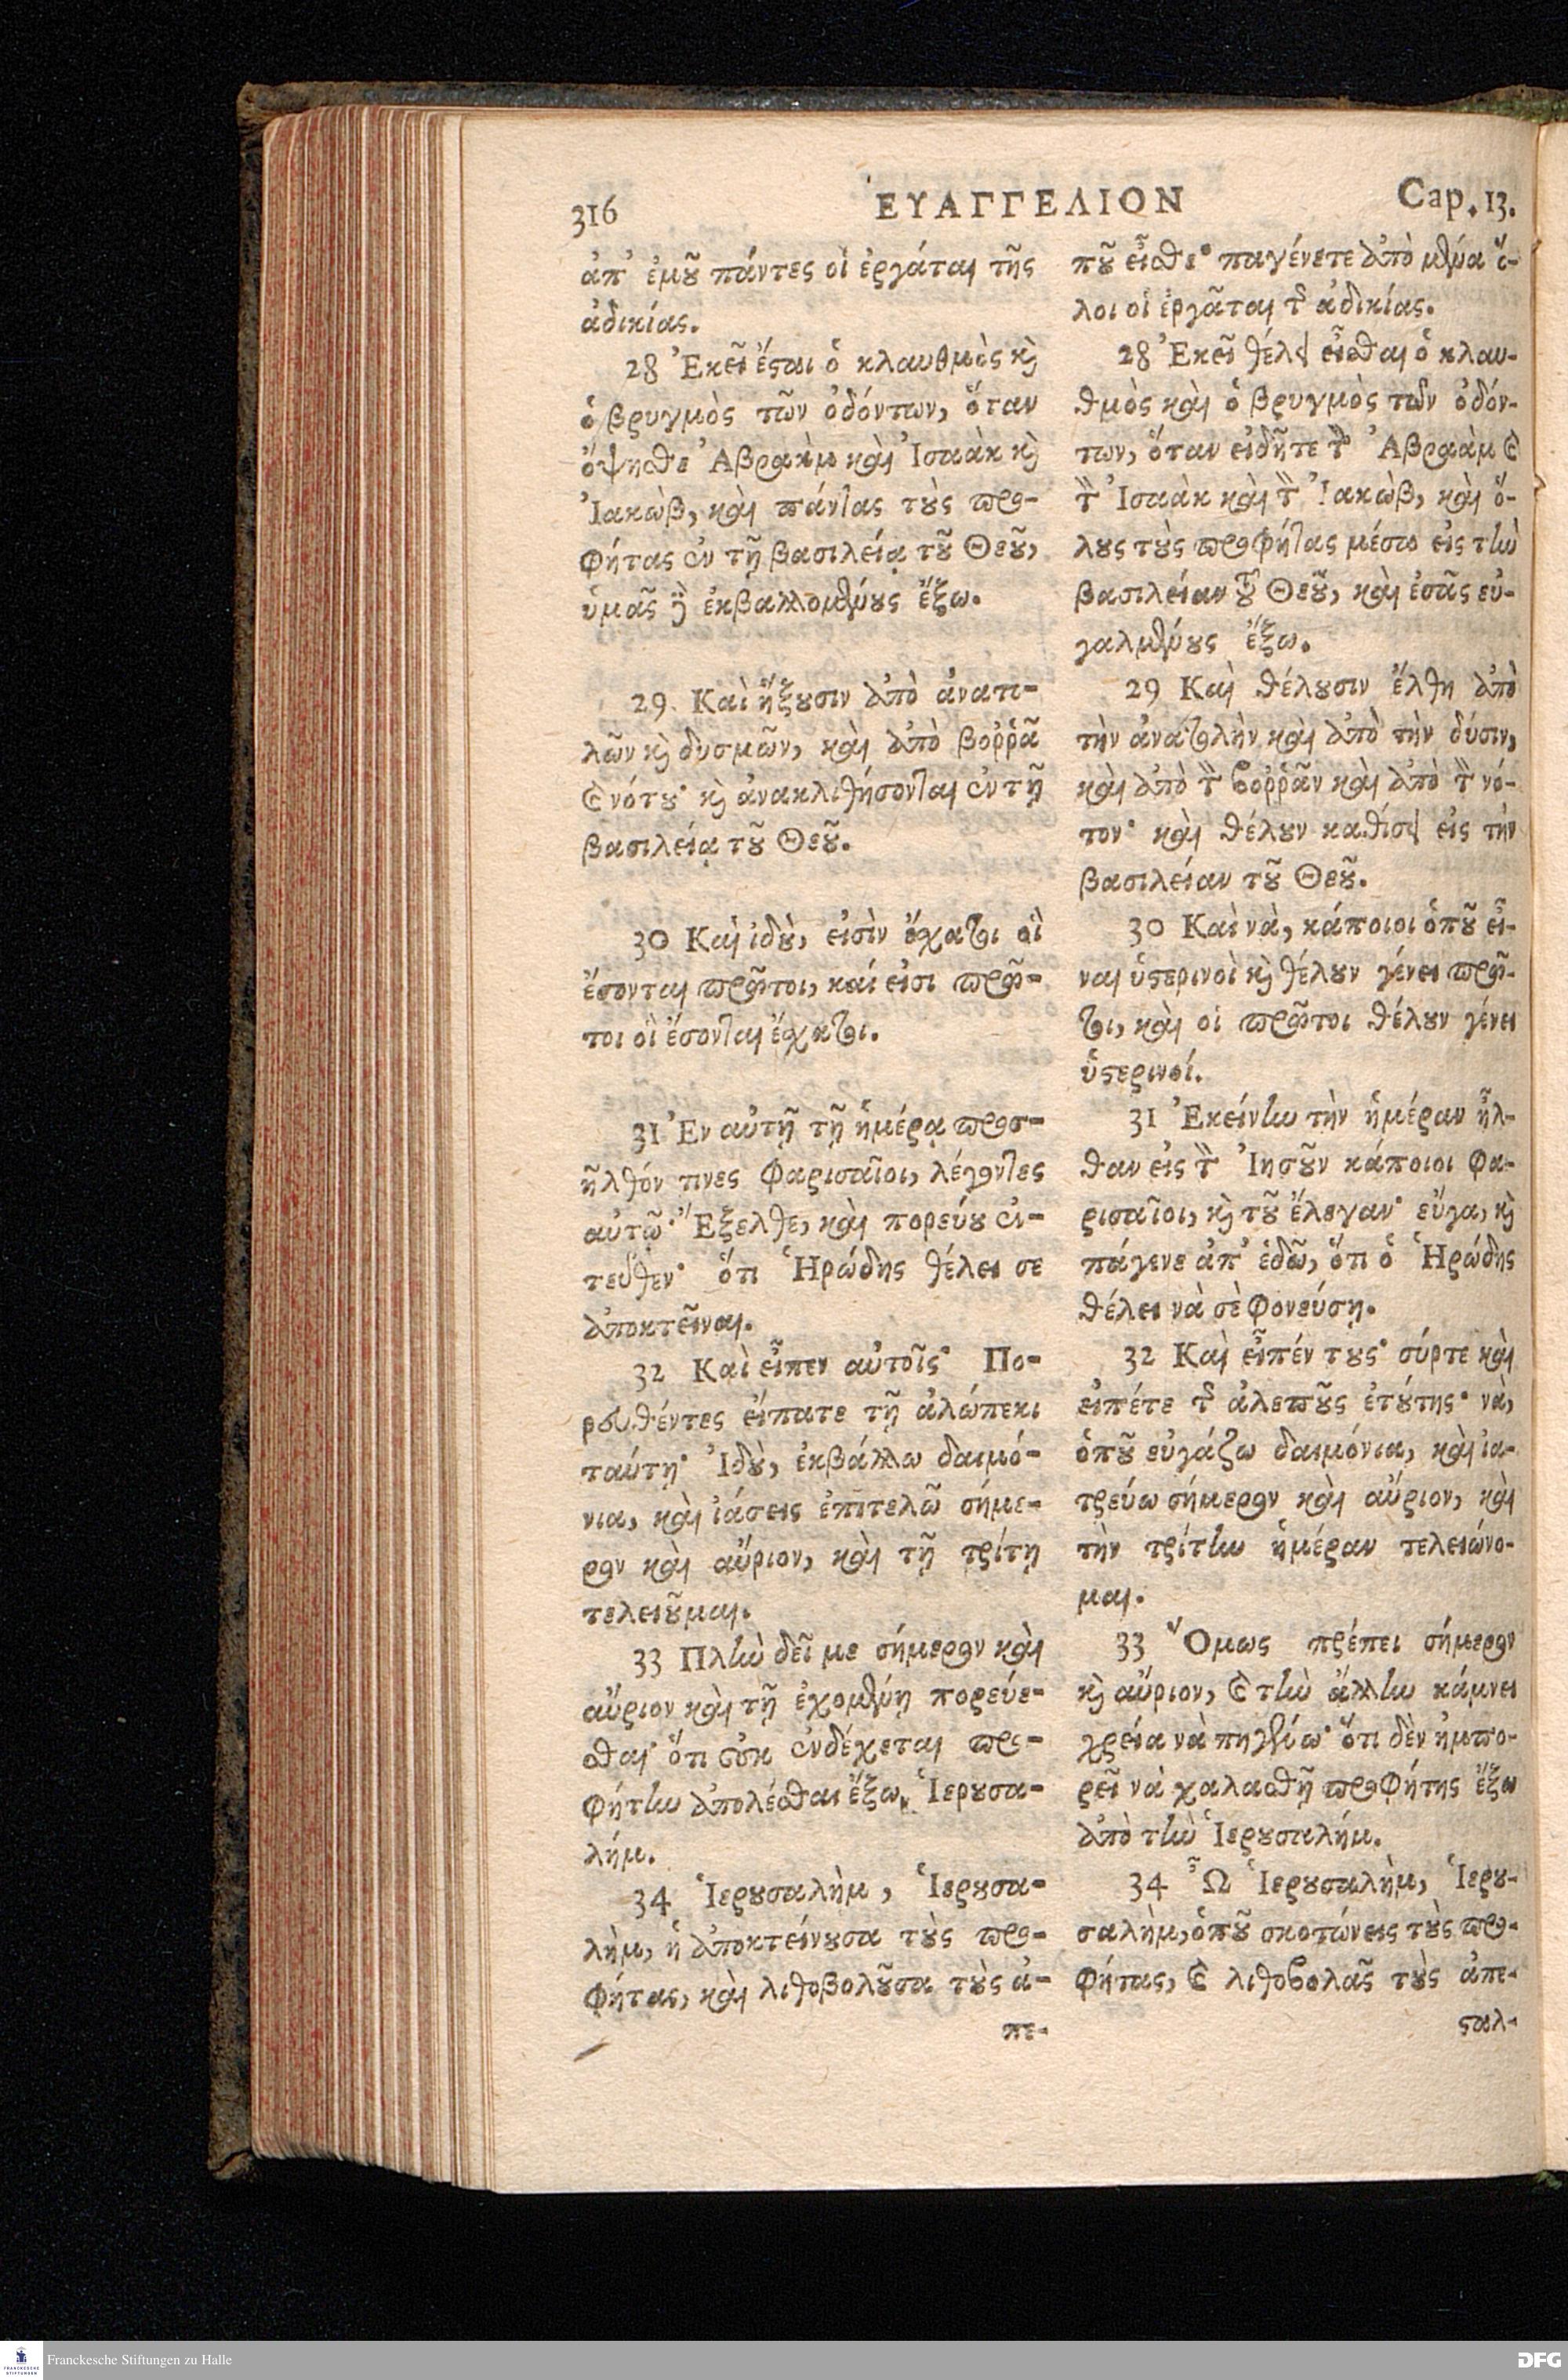 316
ἘΥΑΓΓΕΛΙΟΝ
Cap. 13.
ἀπ' ἐμοῦ πάντες οἱ ἐργάται τῆς
ἀδικίας.
28 Ἐκεῖ ἔσται ὁ κλαυθμὸς καὶ
ὁ βρυγμὸς τῶν ὀδόντων, ὅταν
ὄψησθε Ἀβραὰμ καὶ Ἰσαὰκ καὶ
Ἰακὼβ, καὶ πάντας τοὺς προ-
φήτας ἐν τῇ βασιλείᾳ τοῦ Θεοῦ,
ὑμᾶς δὲ ἐκβαλλομένους ἔξω.
29. Καὶ ἥξουσιν ἀπὸ ἀνατο-
λῶν καὶ δυσμῶν, καὶ ἀπὸ βοῤῥᾶ
καὶ νότου· καὶ ἀνακλιθήσονται ἐν τῇ
βασιλείᾳ τοῦ Θεοῦ.
30 Καὶ ἰδοὺ, εἰσὶν ἔσχατοι οἳ
ἔσονται πρῶτοι, καί εἰσι πρῶ-
τοι οἳ ἔσονται ἔσχατοι.
31 Ἐν αὐτῇ τῇ ἡμέρᾳ προσ-
ῆλθόν τινες Φαρισαῖοι, λέγοντες
αὐτῷ· Ἔξελθε, καὶ πορεύου ἐν-
τεῦθεν· ὅτι Ἡρώδης θέλει σε
ἀποκτεῖναι.
32 Καὶ εἶπεν αὐτοῖς· Πο-
ρευθέντες εἴπατε τῇ ἀλώπεκι
ταύτῃ· Ἰδοὺ, ἐκβάλλω δαιμό-
νια, καὶ ἰάσεις ἐπιτελῶ σήμε-
ρον καὶ αὔριον, καὶ τῇ τρίτῃ
τελειοῦμαι.
33 Πλὴν δεῖ με σήμερον καὶ
αὔριον καὶ τῇ ἐχομένῃ πορεύε-
σθαι· ὅτι οὐκ ἐνδέχεται προ-
φήτην ἀπολέσθαι ἔξω Ἱερουσα-
λήμ.
34 Ἱερουσαλὴμ, Ἱερουσα-
λὴμ, ἡ ἀποκτείνουσα τοὺς προ-
φήτας, καὶ λιθοβολοῦσα τοὺς ἀ-
πε-
ποῦ εἶσθε· παγένετε ἀπὸ μένα ὅ-
λοι οἱ ἐργᾶται τῆς ἀδικίας.
28 Ἐκεῖ θέλει εἶσθαι ὁ κλαυ-
θμὸς καὶ ὁ βρυγμὸς τῶν ὀδόν-
των, ὅταν εἰδῆτε τὸν Ἀβραὰμ καὶ
τὸν Ἰσαὰκ καὶ τὸν Ἰακὼβ, καὶ ὅ-
λους τοὺς προφήτας μέσα εἰς τὴν
βασιλείαν τοῦ Θεοῦ, καὶ ἐσᾶς εὐ-
γαλμένους ἔξω.
29 Καὶ θέλουσιν ἔλθῃ ἀπὸ
τὴν ἀνατολὴν καὶ ἀπὸ τὴν δύσιν,
καὶ ἀπὸ τὸν βοῤῥᾶν καὶ ἀπὸ τὸν νό-
τον· καὶ θέλουν καθίσει εἰς τὴν
βασιλείαν τοῦ Θεοῦ.
30 Καὶ νὰ, κάποιοι ὁποῦ εἶ-
ναι ὑστερινοὶ καὶ θέλουν γένει πρῶ-
τοι, καὶ οἱ πρῶτοι θέλουν γένει
ὑστερινοί.
31 Ἐκείνην τὴν ἡμέραν ἦλ-
θαν εἰς τὸν Ἰησοῦν κάποιοι Φα-
ρισαῖοι, καὶ τοῦ ἔλεγαν· εὔγα, καὶ
πάγενε ἀπ' ἐδῶ, ὅτι ὁ Ἡρώδης
θέλει νὰ σὲ φονεύσῃ.
32 Καὶ εἶπέν τους· σύρτε καὶ
εἰπέτε τῆς ἀλεποῦς ἐτούτης· νὰ,
ὁποῦ εὐγάζω δαιμόνια, καὶ ἰα-
τρεύω σήμερον καὶ αὔριον, καὶ
τὴν τρίτην ἡμέραν τελειώνο-
μαι.
33 Ὅμως πρέπει σήμερον
καὶ αὔριον, καὶ τὴν ἄλλην κάμνει
χρεία νὰ πηγαίνω· ὅτι δὲν ἠμπο-
ρεῖ νὰ χαλασθῇ προφήτης ἔξω
ἀπὸ τὴν Ἱερουσαλήμ.
34 Ὦ Ἱερουσαλὴμ, Ἱερου-
σαλὴμ, ὁποῦ σκοτώνεις τοὺς προ-
φήτας, καὶ λιθοβολᾶς τοὺς ἀπε-
σταλ-
Franckesche Stiftungen zu Halle
FRANCKESCHE STIFTUNGEN
DFG